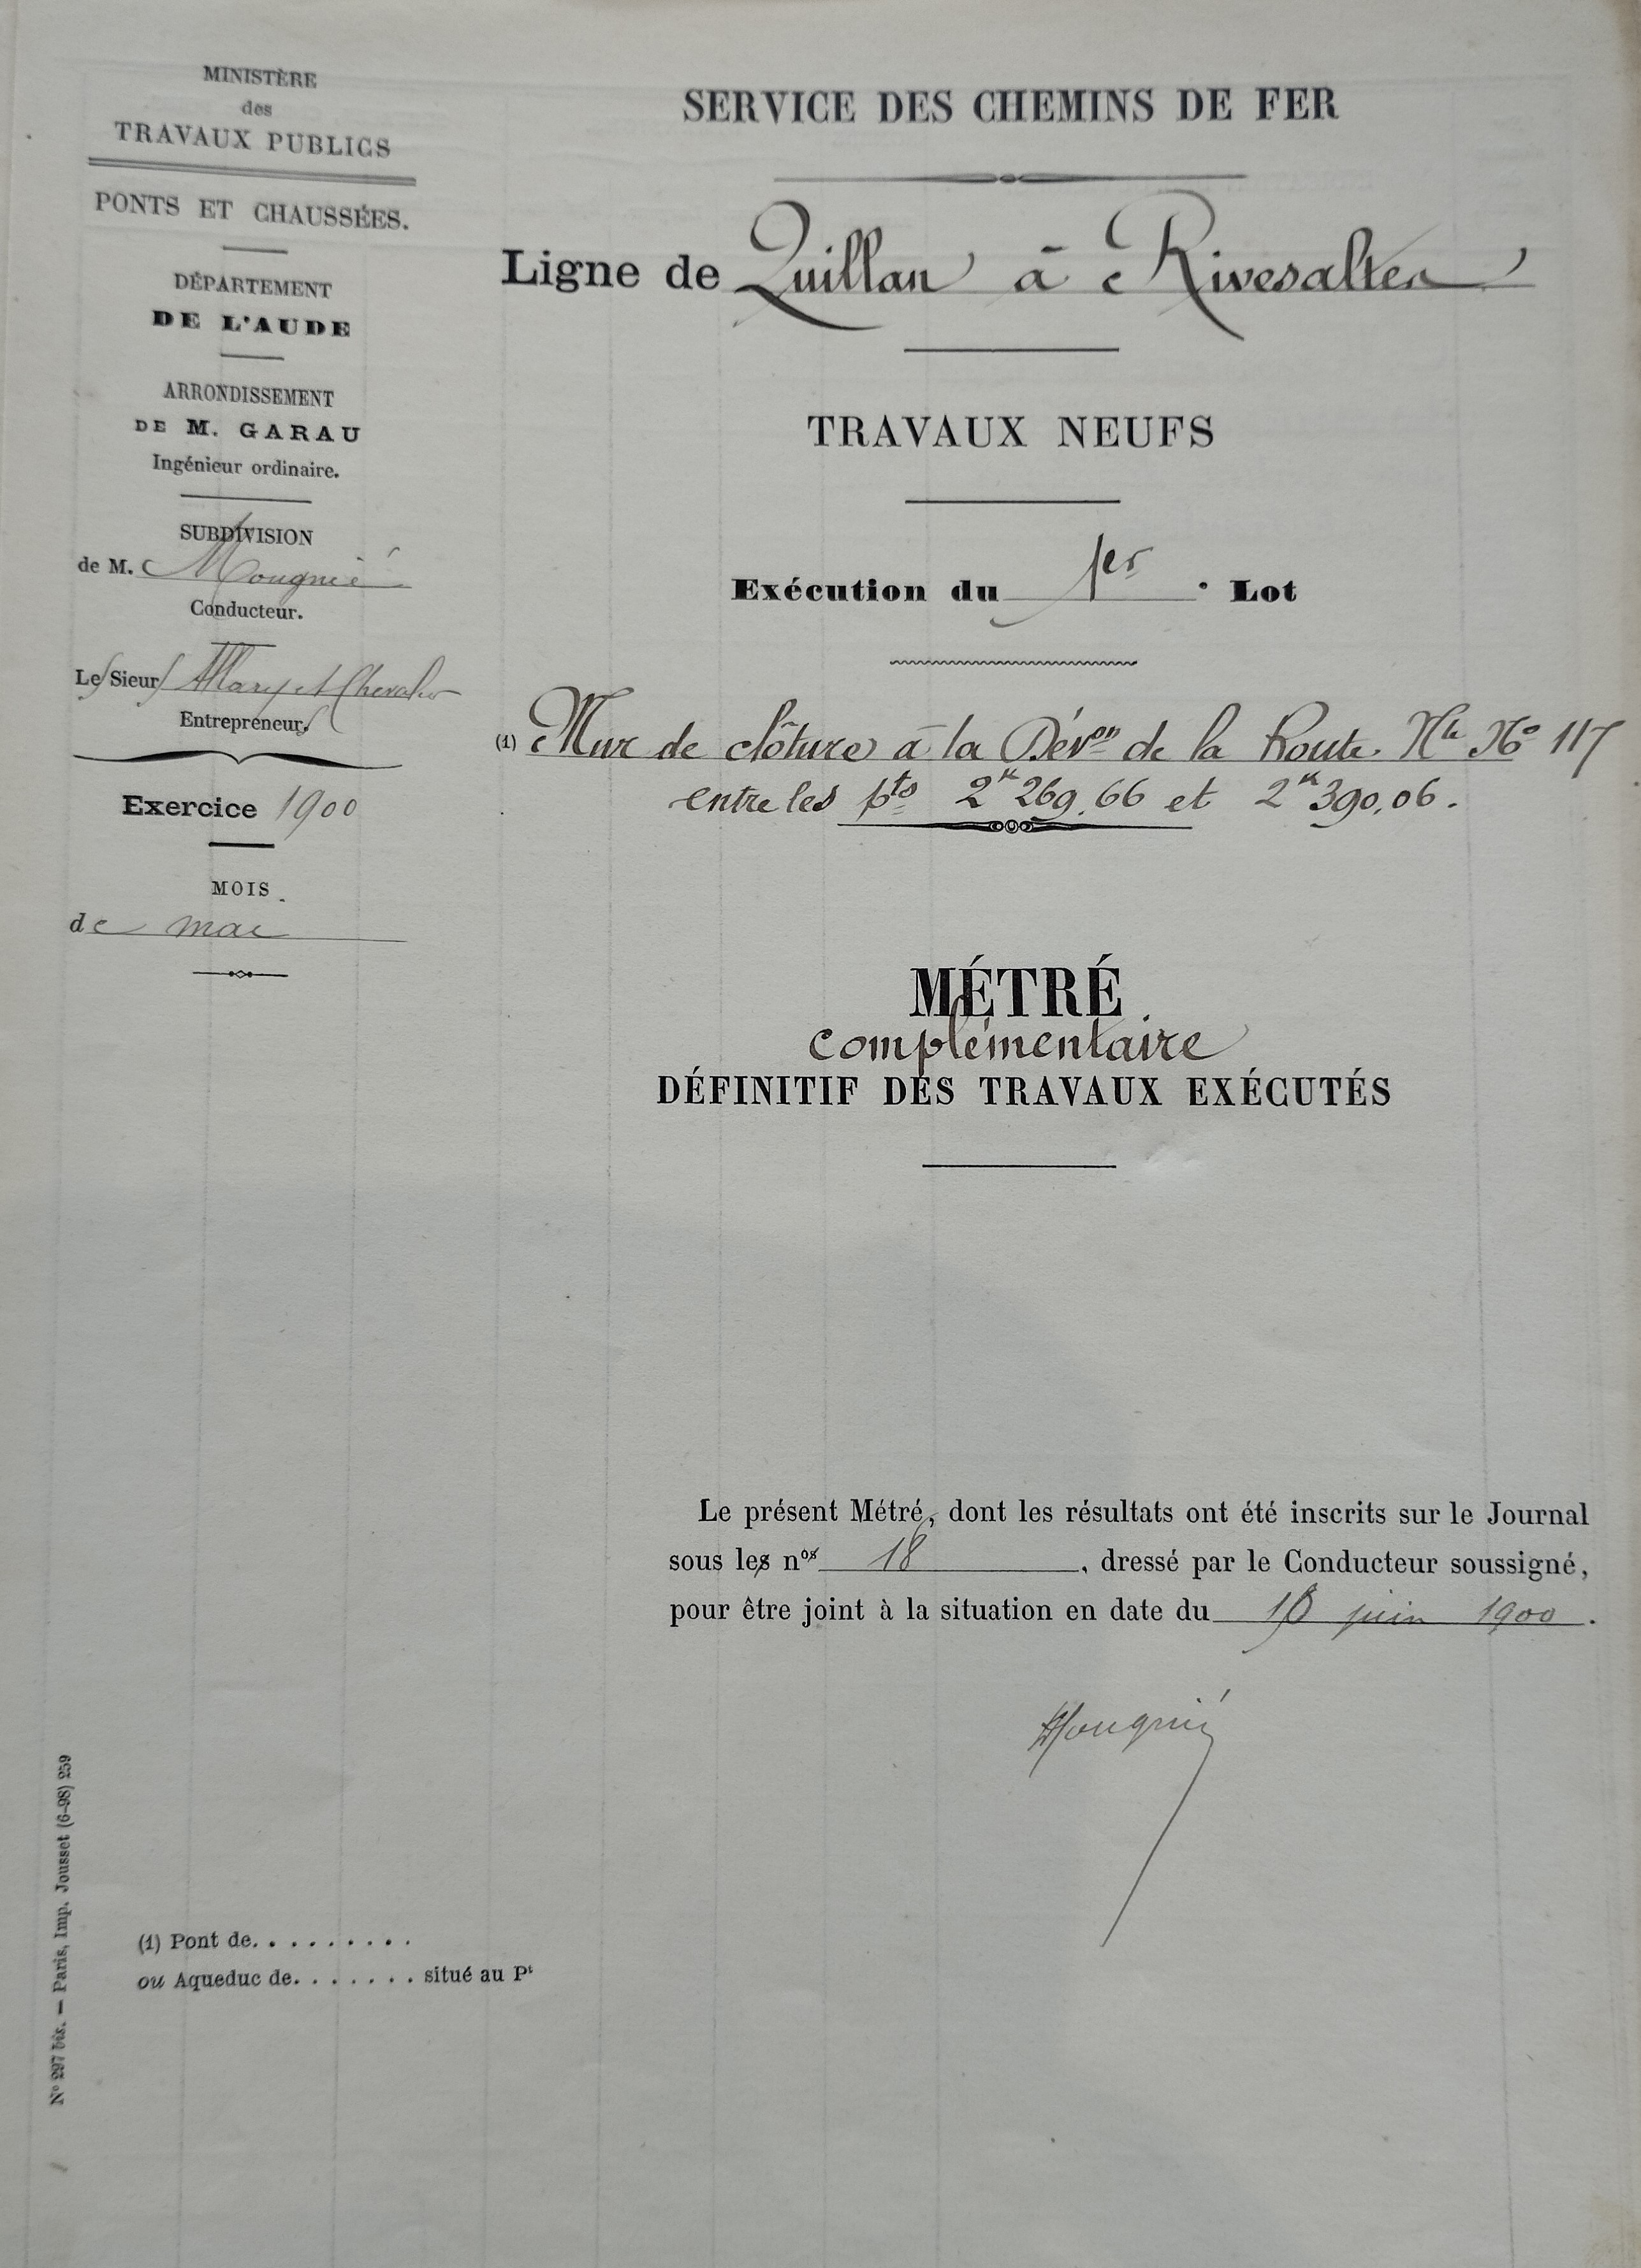 MINISTÈRE
des
TRAVAUX PUBLICS
PONTS ET CHAUSSÉES.
DÉPARTEMENT
DE L'AUDE
ARRONDISSEMENT
DE M. GARAU
Ingénieur ordinaire.
SUBDIVISION
de M. Mougnié
Conducteur.
Les Sieurs Mary et Chevalier
Entrepreneurs
Exercice 1900
MOIS
de mai
SERVICE DES CHEMINS DE FER
Ligne de Quillan à Rivesaltes
TRAVAUX NEUFS
Exécution du 1er Lot
(1) Mur de clôture à la Dévon de la Route Nle No 117
entre les pts 2k269,66 et 2k390,06.
MÉTRÉ
complémentaire
DÉFINITIF DES TRAVAUX EXÉCUTÉS
Le présent Métré, dont les résultats ont été inscrits sur le Journal
sous les nos 18, dressé par le Conducteur soussigné,
pour être joint à la situation en date du juin 1900.
Mougnié
(1) Pont de. . . . . . . . .
ou Aqueduc de. . . . . . . situé au Pt
No 297 bis. — Paris, Imp. Jousset (6-98) 259